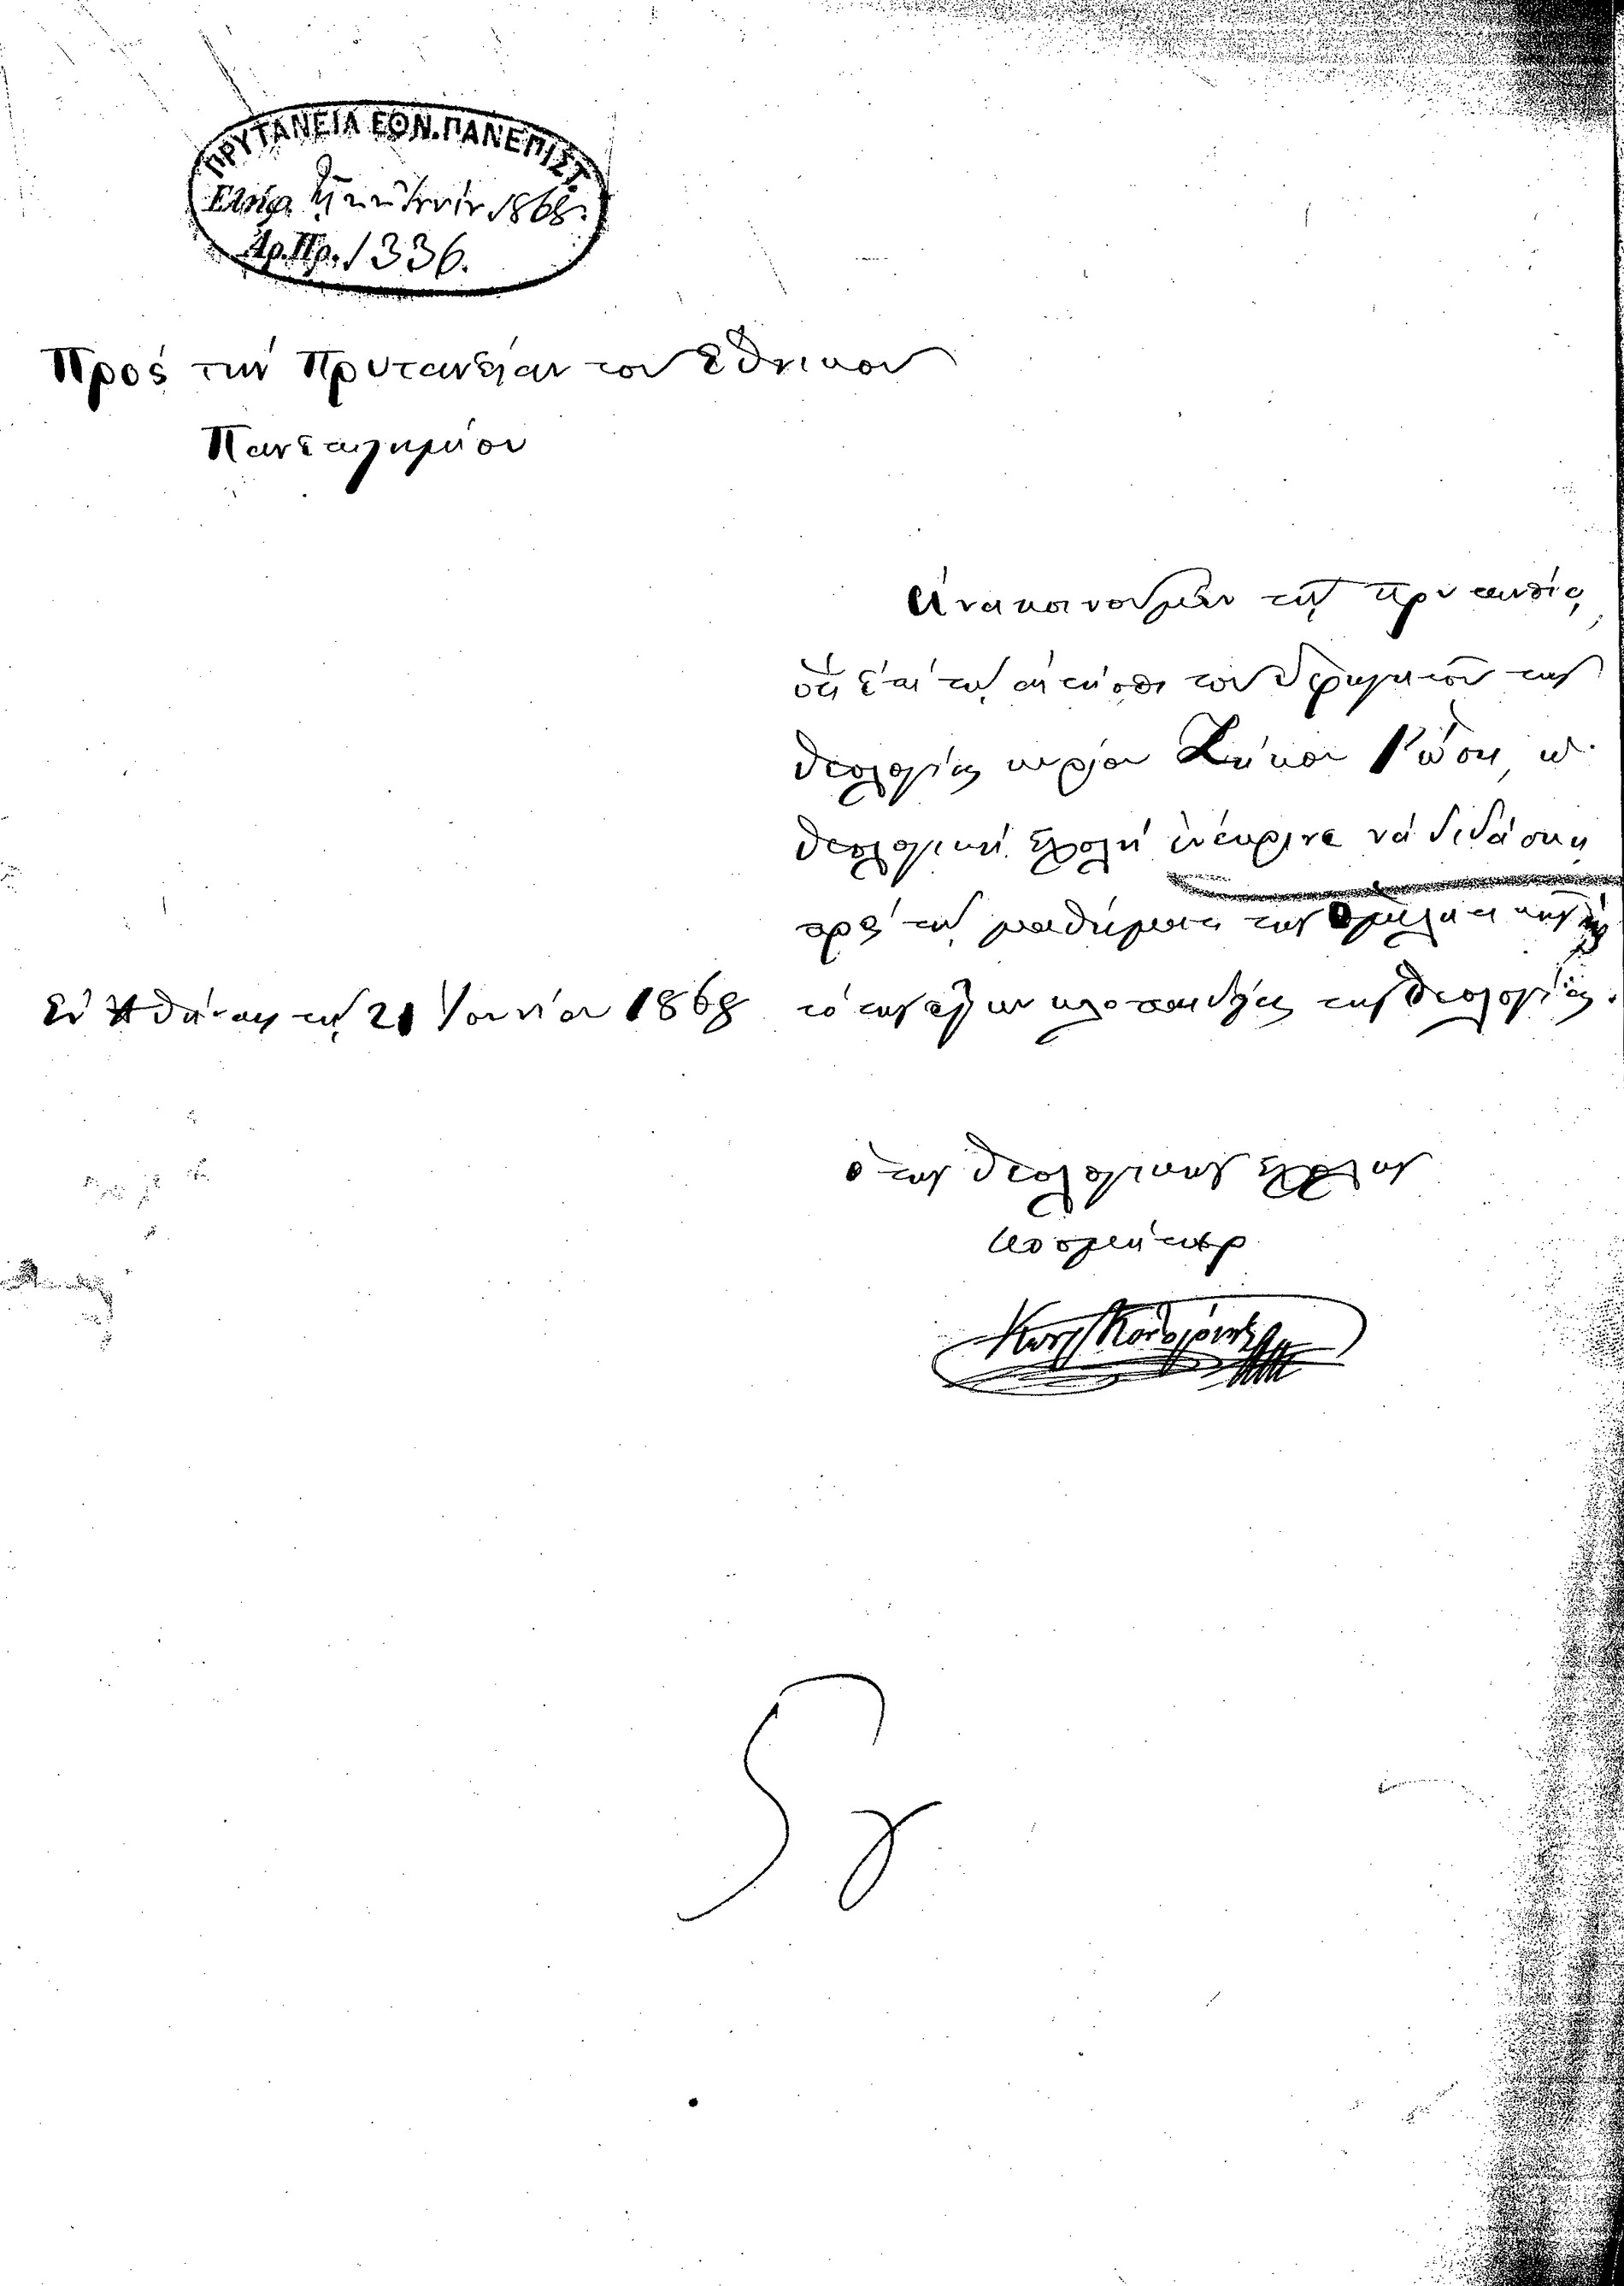 ΠΡΥΤΑΝΕΙΑ ΕΘΝ. ΠΑΝΕΠΙΣΤ.
Ελήφ. τῇ 22 Ἰουνίου 1868.
Ἀρ. Πρ. 1336.
Πρὸς τὴν Πρυτανείαν τοῦ Ἐθνικοῦ
Πανεπιστημίου
Ἀνακοινοῦμεν τῇ Πρυτανείᾳ,
ὅτι ἐπὶ τῇ αἰτήσει τοῦ ὑφηγητοῦ τῆς
θεολογίας κυρίου Ζήκου Ῥώση, ἡ
θεολογικὴ Σχολὴ ἐνέκρινε νὰ διδάσκῃ
πρὸς τῷ μαθήματι τῆς
τὸ τῆς ἐγκυκλοπαιδείας τῆς θεολογίας.
Ἐν Ἀθήναις τῇ 21 Ἰουνίου 1868
ὁ τῆς θεολογικῆς Σχολῆς
κοσμήτωρ
Κωνσ. Κοντογόνης